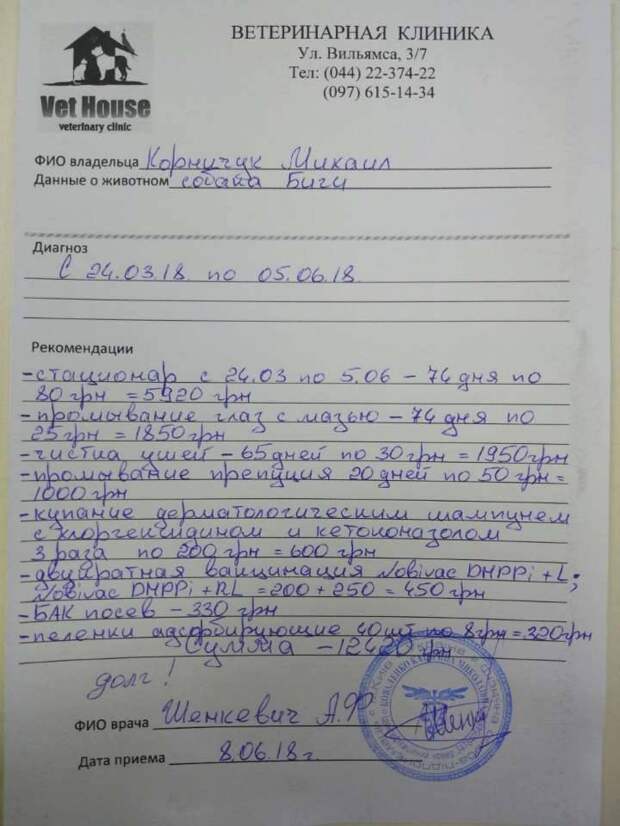 ВЕТЕРИНАРНАЯ КЛИНИКА
Ул. Вильямса, 3/7
Тел: (044) 22-374-22
(097) 615-14-34
Vet House
veterinary clinic
ФИО владельца Корничук Михаил
Данные о животном собака Биги
Диагноз
С 24.03.18 по 05.06.18
Рекомендации
-стационар с 24.03 по 5.06 - 74 дня по
80 грн = 5920 грн
-промывание глаз с мазью - 74 дня по
25 грн = 1850 грн
-чистка ушей - 65 дней по 30 грн = 1950 грн
-промывание препуция 20 дней по 50 грн =
1000 грн
-купание дерматологическим шампунем
с хлоргексидином и кетоконазолом
3 раза по 200 грн = 600 грн
-двукратная вакцинация Nobivac DHPPi + L;
Nobivac DHPPi + RL = 200 + 250 = 450 грн
-БАК посев - 330 грн
-пеленки адсорбирующие 40 шт по 8 грн = 320 грн
Сумма - 12420 грн
долг!
ФИО врача Шенкевич А.Ф
Дата приема 8.06.18 г.